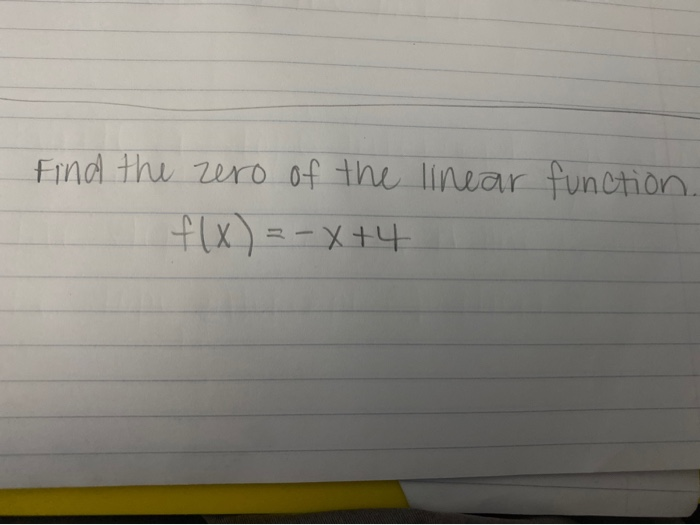 Find the zero of the linear function.
f(x) = -x+4